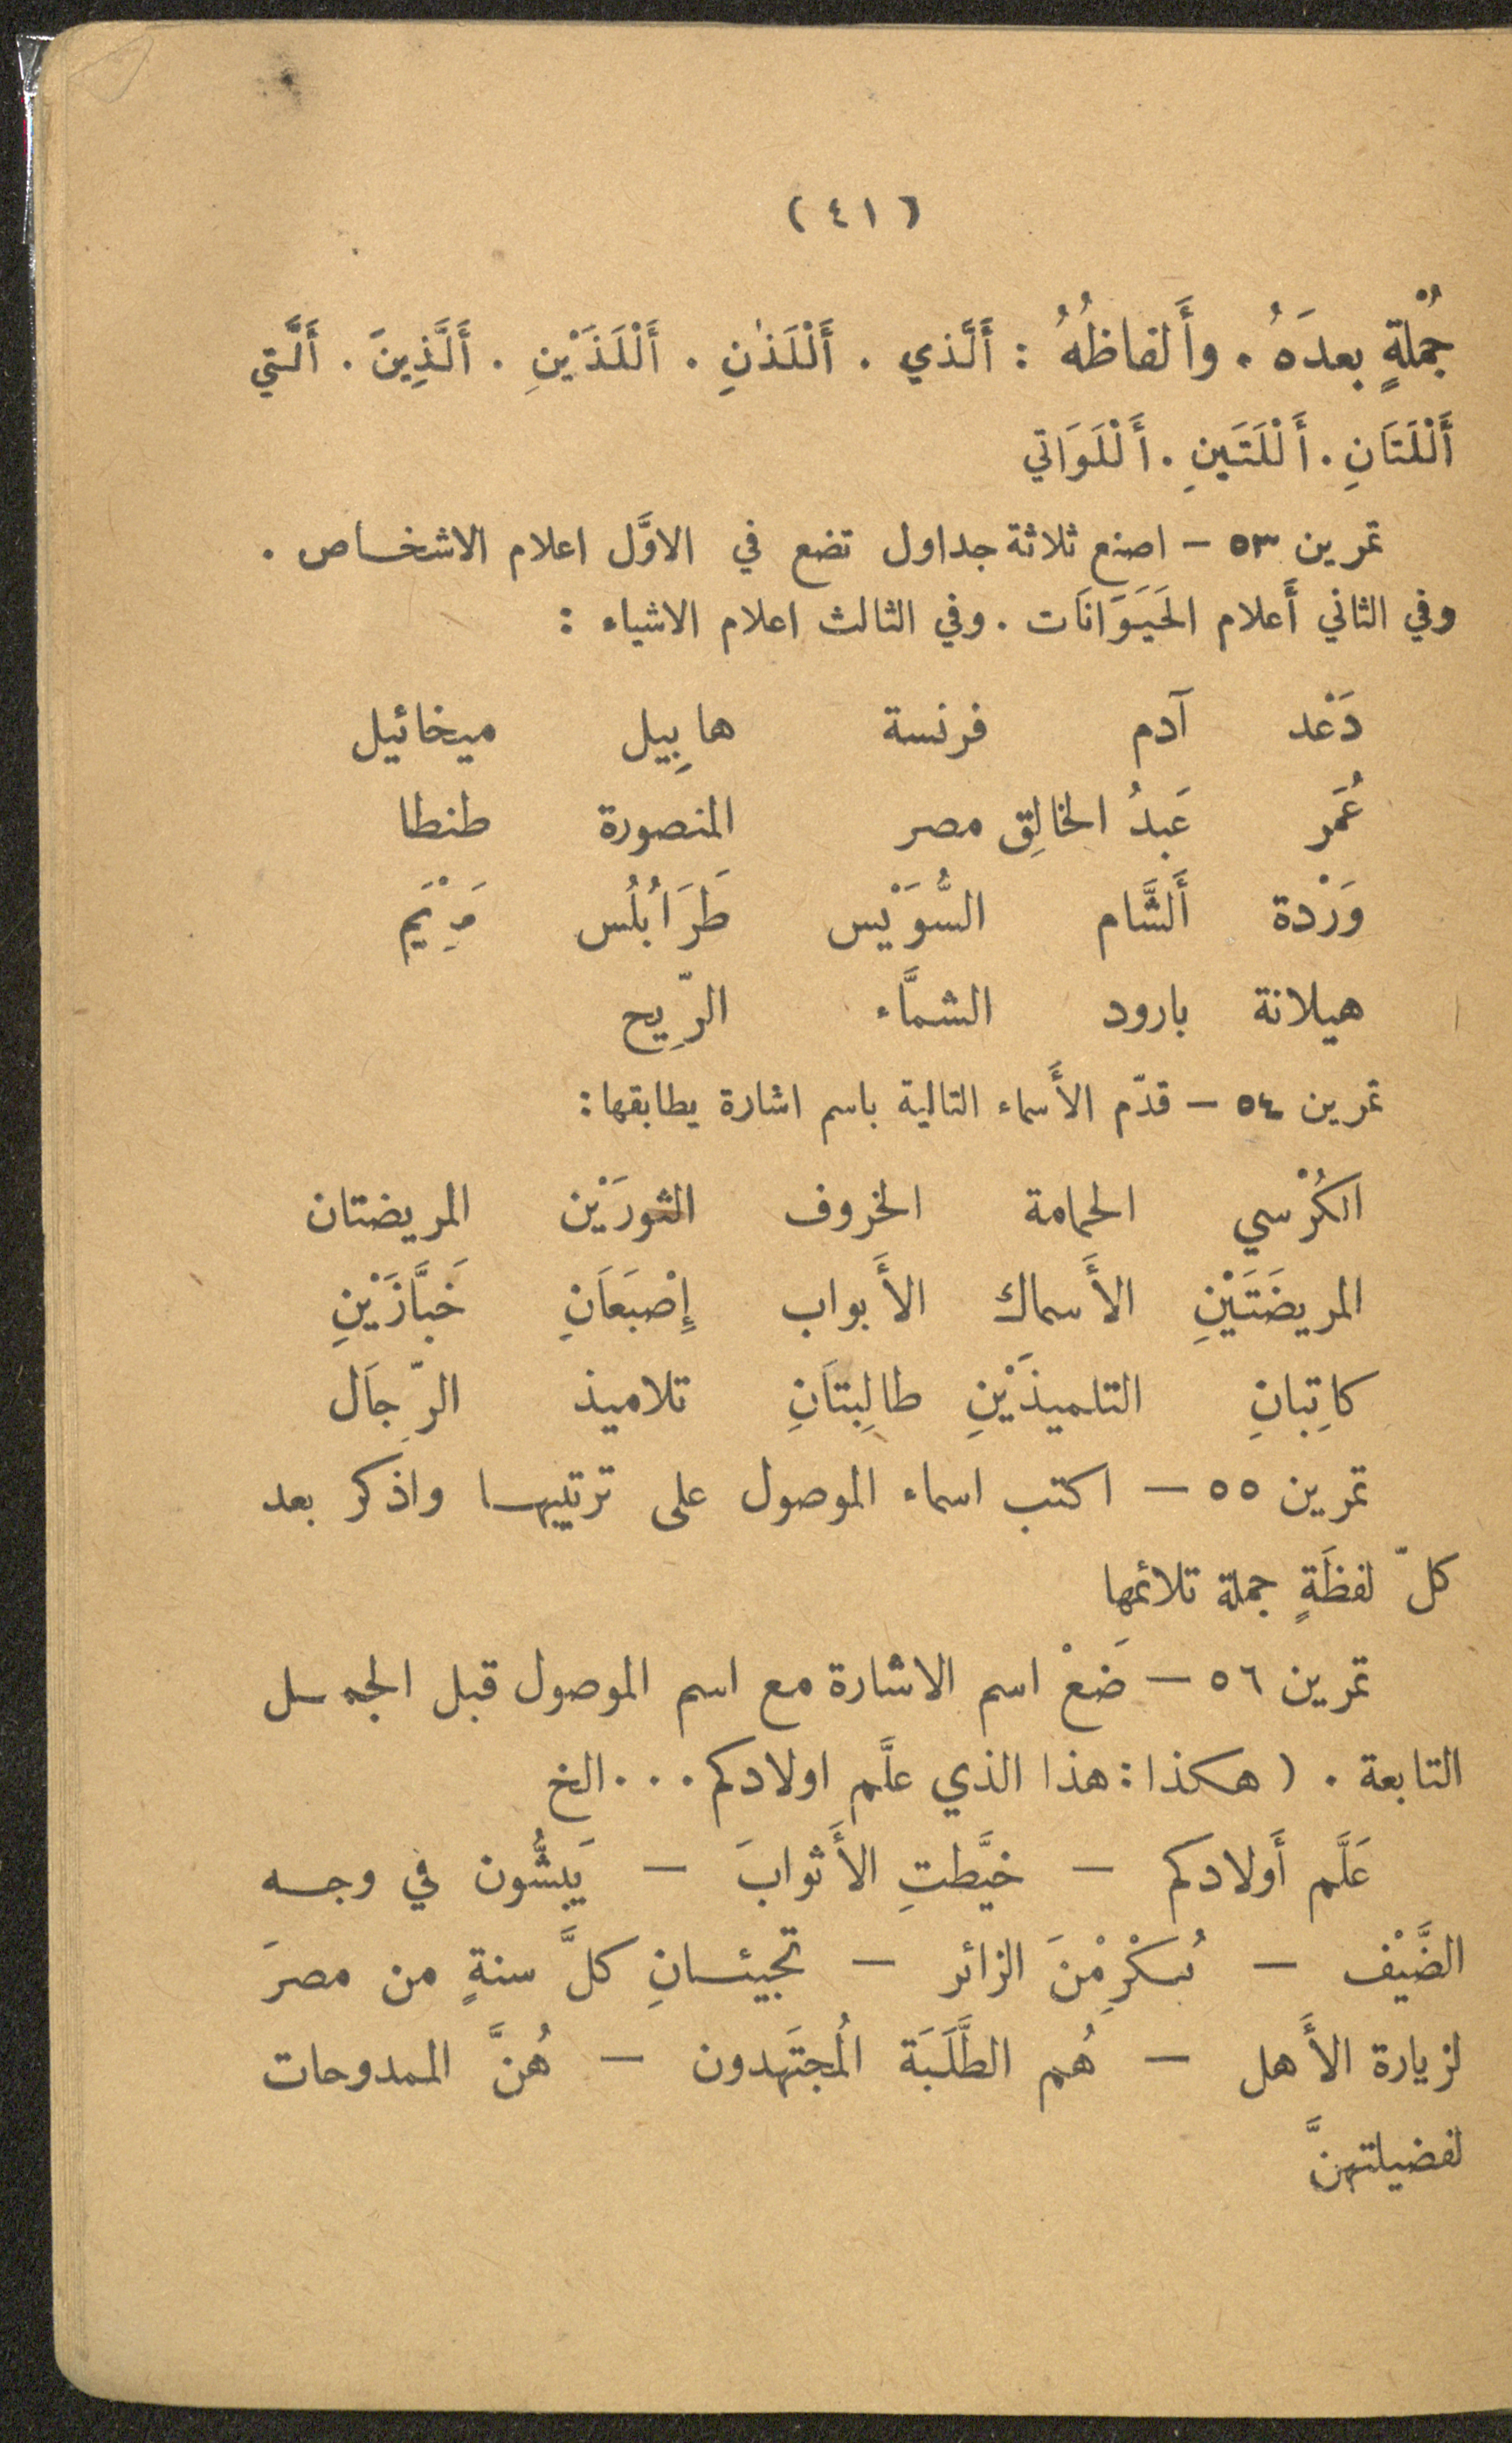 (٤١)
جُمْلةٍ بعدَهُ. وأَلفاظُهُ : أَلَّذي . أَلْلَذٰنِ . أَلْلَذَيْنِ . أَلَّذِينَ . أَلَّتي
أَلْلَتَانِ . أَلْلَتَينِ . أَلْلَوَاتي
تمرين ٥٣ — اصنع ثلاثة جداول تضع في الاوَّل اعلام الاشخاص .
وفي الثاني أَعلام الحَيَوَانَات . وفي الثالث اعلام الاشياء :
دَعْد آدم فرنسة هابِيل ميخائيل
عُمَر عَبدُ الخالِق مصر المنصورة طنطا
وَرْدة أَلشَّام السُّوَيْس طَرَابُلُس مَرْيَم
هيلانة بارود الشمَّاء الرِّيح
تمرين ٥٤ — قدّم الأَسماء التالية باسم اشارة يطابقها :
الكُرْسي الحمامة الخروف الثورَيْن المريضتان
المريضَتَيْنِ الأَسماك الأَبواب إِصْبَعَانِ خَبَّازَيْنِ
كاتِبانِ التلميذَيْنِ طالِبتَانِ تلاميذ الرِّجَال
تمرين ٥٥ — اكتب اسماء الموصول على ترتيبها واذكر بعد
كلّ لفظَةٍ جملة تلائمها
تمرين ٥٦ — ضَعْ اسم الاشارة مع اسم الموصول قبل الجمل
التابعة . ( هكذا : هذا الذي علَّم اولادكم . . . الخ
عَلَّم أَولادكم — خيَّطتِ الأَثوابَ — يَبِشُّون في وجه
الضَّيْف — يُكْرِمْنَ الزائر — تجيئانِ كلَّ سنةٍ من مصرَ
لزيارة الأَهل — هُم الطَّلَبَة المُجتَهدون — هُنَّ الممدوحات
لفضيلتهنَّ